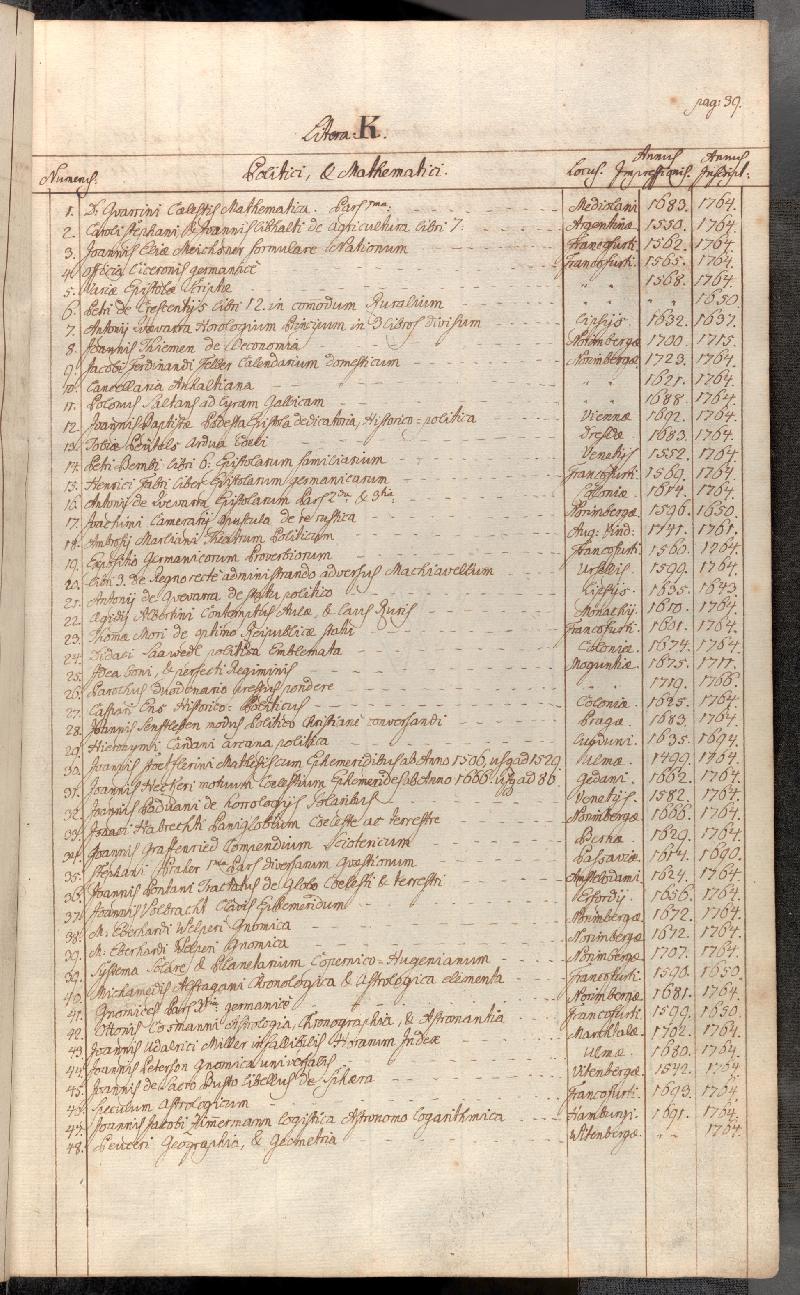 pag: 39.
Litera K.
Numerus. Politici, & Mathematici. Locus. Annus Impressionis. Annus Inscript:
1. D. Gvarrini Cælestis Mathematica. Pars 1ma. Mediolani 1683. 1764.
2. Caroli Stephani & Joannis Libhalti de Agricultura Libri 7. Argentinæ 1550. 1764.
3. Joannis Eliæ Meichsner formulare Francofurti 1562. 1764.
4. Officia Ciceronis germanicè Francofurti 1565. 1764.
5. Variæ Epistolæ " " 1568. 1764.
6. Petri de Crescentijs Libri 12. in comodum Ruralium " " " 1650.
7. Antonij Gvevarra Horologium Principum in 3 Libros divisum Lipsijs 1632. 1637.
8. Joannis Thiemen de Oeconomia Norimbergæ 1700. 1715.
9. Jacobi Ferdinandi Felder Calendarium domesticum Norimbergæ 1723. 1764.
10. Cancellaria Anhaltiana " " 1621. 1764.
11. Polonus Saltans ad Lyram Gallicam " " 1688. 1764.
12. Joannis Baptistæ Podesta Epistola dedicatoria, Historico=politica Viennæ 1692. 1764.
13. Tobiæ Ardua Dresdæ 1683. 1764.
14. Petri Bembi Libri 6. Epistolarum familiarium Venetijs 1552. 1764.
15. Henrici Fabri Liber Epistolarum germanicarum Francofurti 1569. 1764.
16. Antonij de Gvevarra Epistolarum Pars 2da & 3tia Coloniæ 1614. 1764.
17. Joachimi Camerarij opuscula de re rustica Norimbergæ 1596. 1650.
18. Ambrosij Marliani Theatrum Politicum Aug: Vind: 1741. 1761.
19. Expositio Germanicorum Proverbiorum Francofurti 1560. 1764.
20. Libri 3. de Regno recte administrando adversus Machiavellum Ursellis 1599. 1764.
21. Antonij de Gvevarra de statu politico Lipsijs 1635. 1643.
22. Ægidij Albertini Contemptus Aulæ, & Laus Ruris Monachij 1610. 1764.
23. Thomæ Mori de optimo Reipublicæ statu Francofurti 1601. 1764.
24. Didaci Saavedl politica Emblemata Coloniæ 1674. 1764.
25. Idea boni, & perfecti Regiminis Moguntiæ 1675. 1711.
26. Parochus duodenario pressus pondere " " 1719. 1766.
27. Caspari Ens Historico=Politicus Coloniæ 1625. 1764.
28. Joannis Senftleben modus Politico Christianè conversandi Pragæ 1683 1764.
29. Hieronymi Cardani arcana politica Lugduni 1635. 1694.
30. Joannis Stoeflerini Mathesis cum Ephemeridibus ab Anno 1506, usq ad 1529. Ulmæ 1499. 1764.
31. Joannis Heckeri motuum Coelestium Ephemerides ab Anno 1666. usq ad 86. Gedani 1662. 1764.
32. Joannis Paduani de horologijs Solaribus Venetijs. 1582. 1764.
33. Habrechti Planiglobium Coeleste ac terrestre Norimbergæ 1666. 1764.
34. Joannis Graffenried Compendium Sciotericum Bernæ 1629. 1764.
35. Stephani 1ma Pars diversarum Qvæstionum Passaviæ 1614. 1690.
36. Joannis Pontani Tractatus de Globo Coelesti & terrestri Amstelodami 1624. 1764.
37. Joannis Voldracht Clavis Ephemeridum Erfordij 1656. 1764.
38. M. Eberhardi Welperi Gnomica Norimbergæ 1672. 1764.
39. M. Eberhardi Welperi Gnomica Norimbergæ 1672. 1764.
39. Systema Solare & Planetarium Copernico=Hugenianum Norimbergæ 1707. 1764.
40. Michamedis Alfragani Chronologica & Astrologica elementa Francofurti 1590. 1650.
41. Gnomices Pars 3tia germanicè Norimbergæ 1681. 1764.
42. Ottonis Cosmanni Astrologia, Chronographia, & Astromantia Francofurti 1599. 1650.
43. Joannis Udalrici Miller infallibilis Horarum Index Marchtalæ 1702. 1764.
44. Joannis Peterson Gnomica universalis Ulmæ 1680. 1764.
45. Joannis de Sacro Busto Libellus de Sphæra Vitenbergæ 1542. 1764
46. Speculum Astrologicum Francofurti 1693. 1764.
47. Joannis Jacobi Zimermann Logistica Astronomo Logarithmica Hamburgi 1691. 1764.
48. Peuceri Geographia, & Geometria Witenbergæ " " 1764.